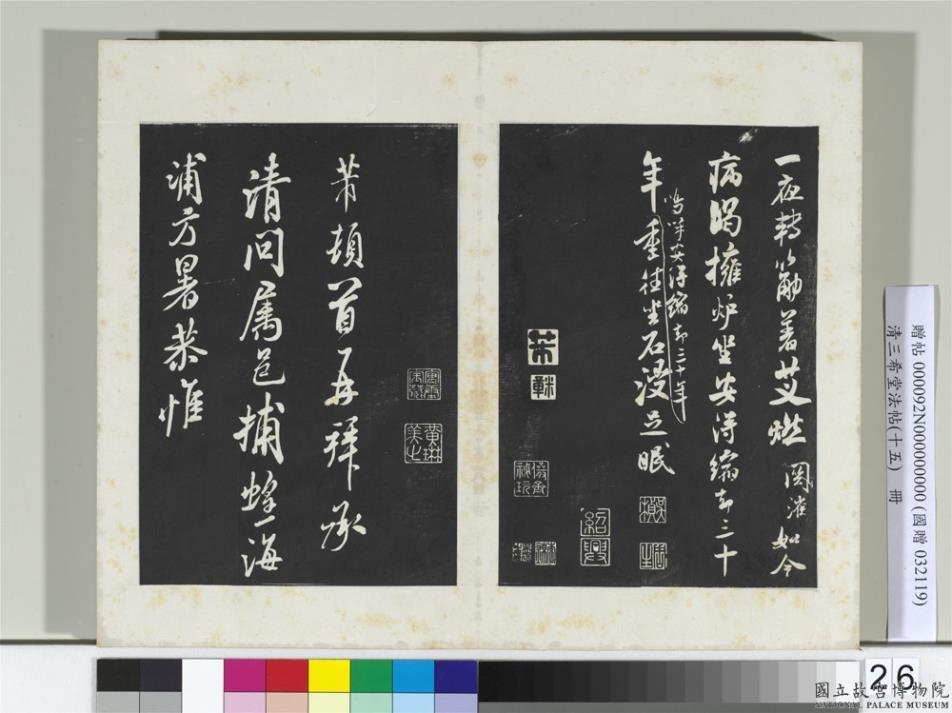 一夜轉筋著艾燃
如今
病
擁炉坐安得縮却三十
年重往坐石浸足眠
安得縮却三十年
芾頓首再拜承
清問属邑捕蝗海
浦方暑恭惟
紹興
黃琳
美之
贈帖 000092N000000000 (國贈 032119)
清三希堂法帖(十五) 冊
26
國立故宮博物院
NATIONAL PALACE MUSEUM